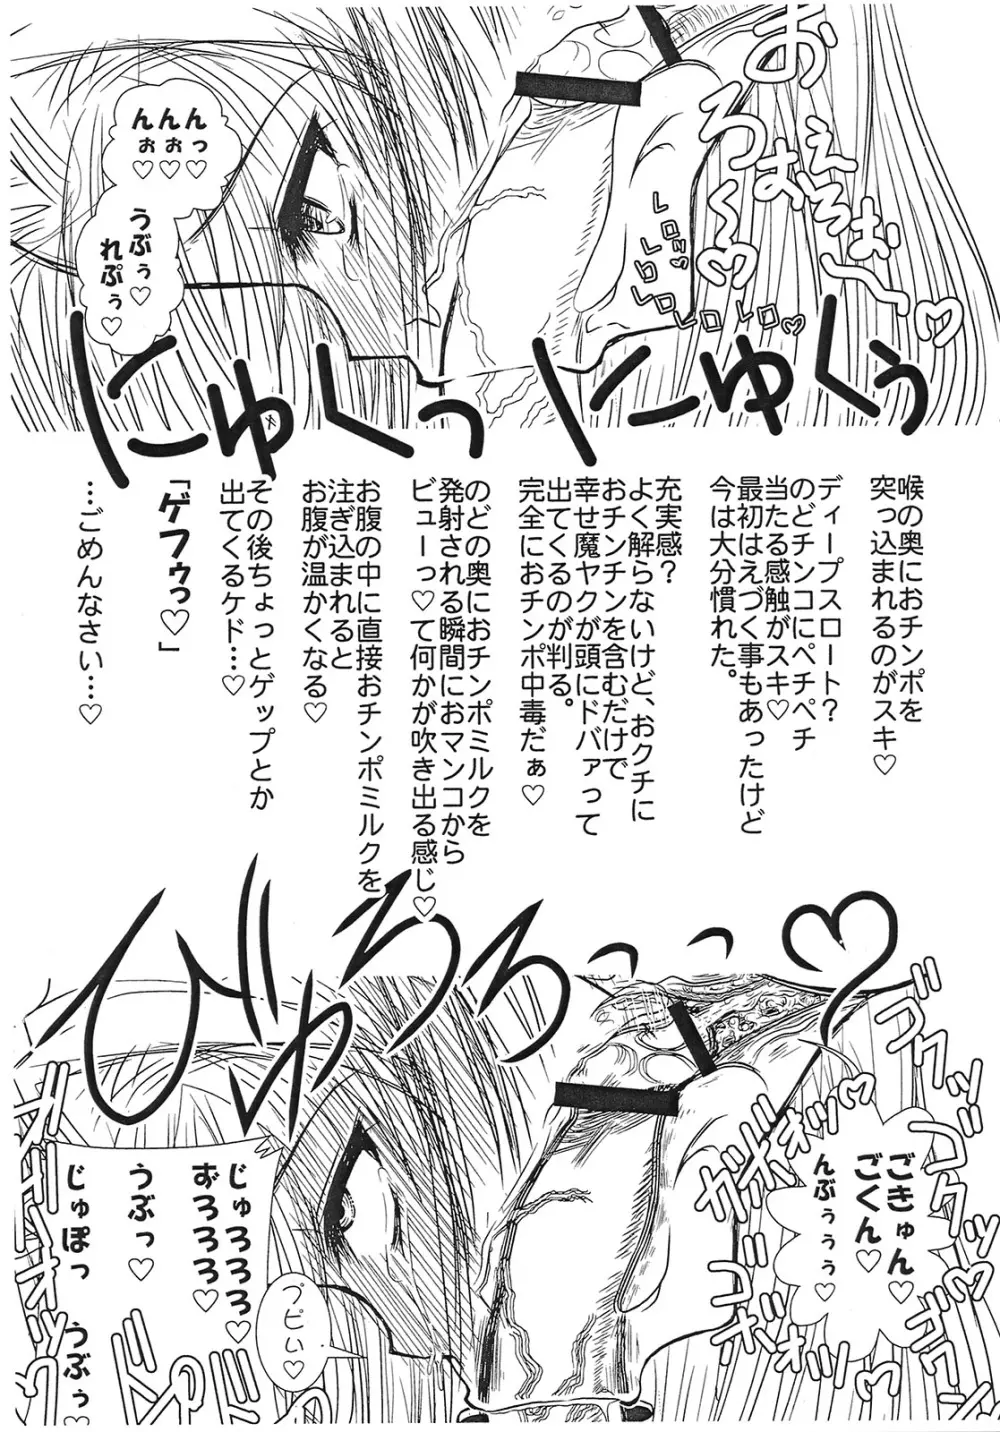 おろぁぇろぉお～～♡
レロレロッレロレロ♡
んっ♡
んぉっ♡
んぉ♡
うぶぅ♡
れぷぅ♡
にゅくっ
にゅくぅ
喉の奥におチンポを
突っ込まれるのがスキ♡
ディープスロート？
のどチンコにペチペチ
当たる感触がスキ♡
最初はえづく事もあったけど
今は大分慣れた。
充実感？
よく解らないけど、おクチに
おチンチンを含むだけで
幸せ魔ヤクが頭にドバァって
出てくるのが判る。
完全におチンポ中毒だぁ♡
のどの奥におチンポミルクを
発射される瞬間におマンコから
ビューっ♡て何かが吹き出る感じ♡
お腹の中に直接おチンポミルクを
注ぎ込まれると
お腹が温かくなる♡
その後ちょっとゲップとか
出てくるケド…♡
「ゲフゥっ♡」
…ごめんなさい…♡
びゅるるーっっ♡
ゴクッ♡
ゴクッ♡
ごきゅん♡
ごくん♡
んぶぅぅぅ♡
じゅろろろ♡
ずろろろろ♡
うぶっ♡
じゅぽっ
うぶぅ♡
プピぃ♡